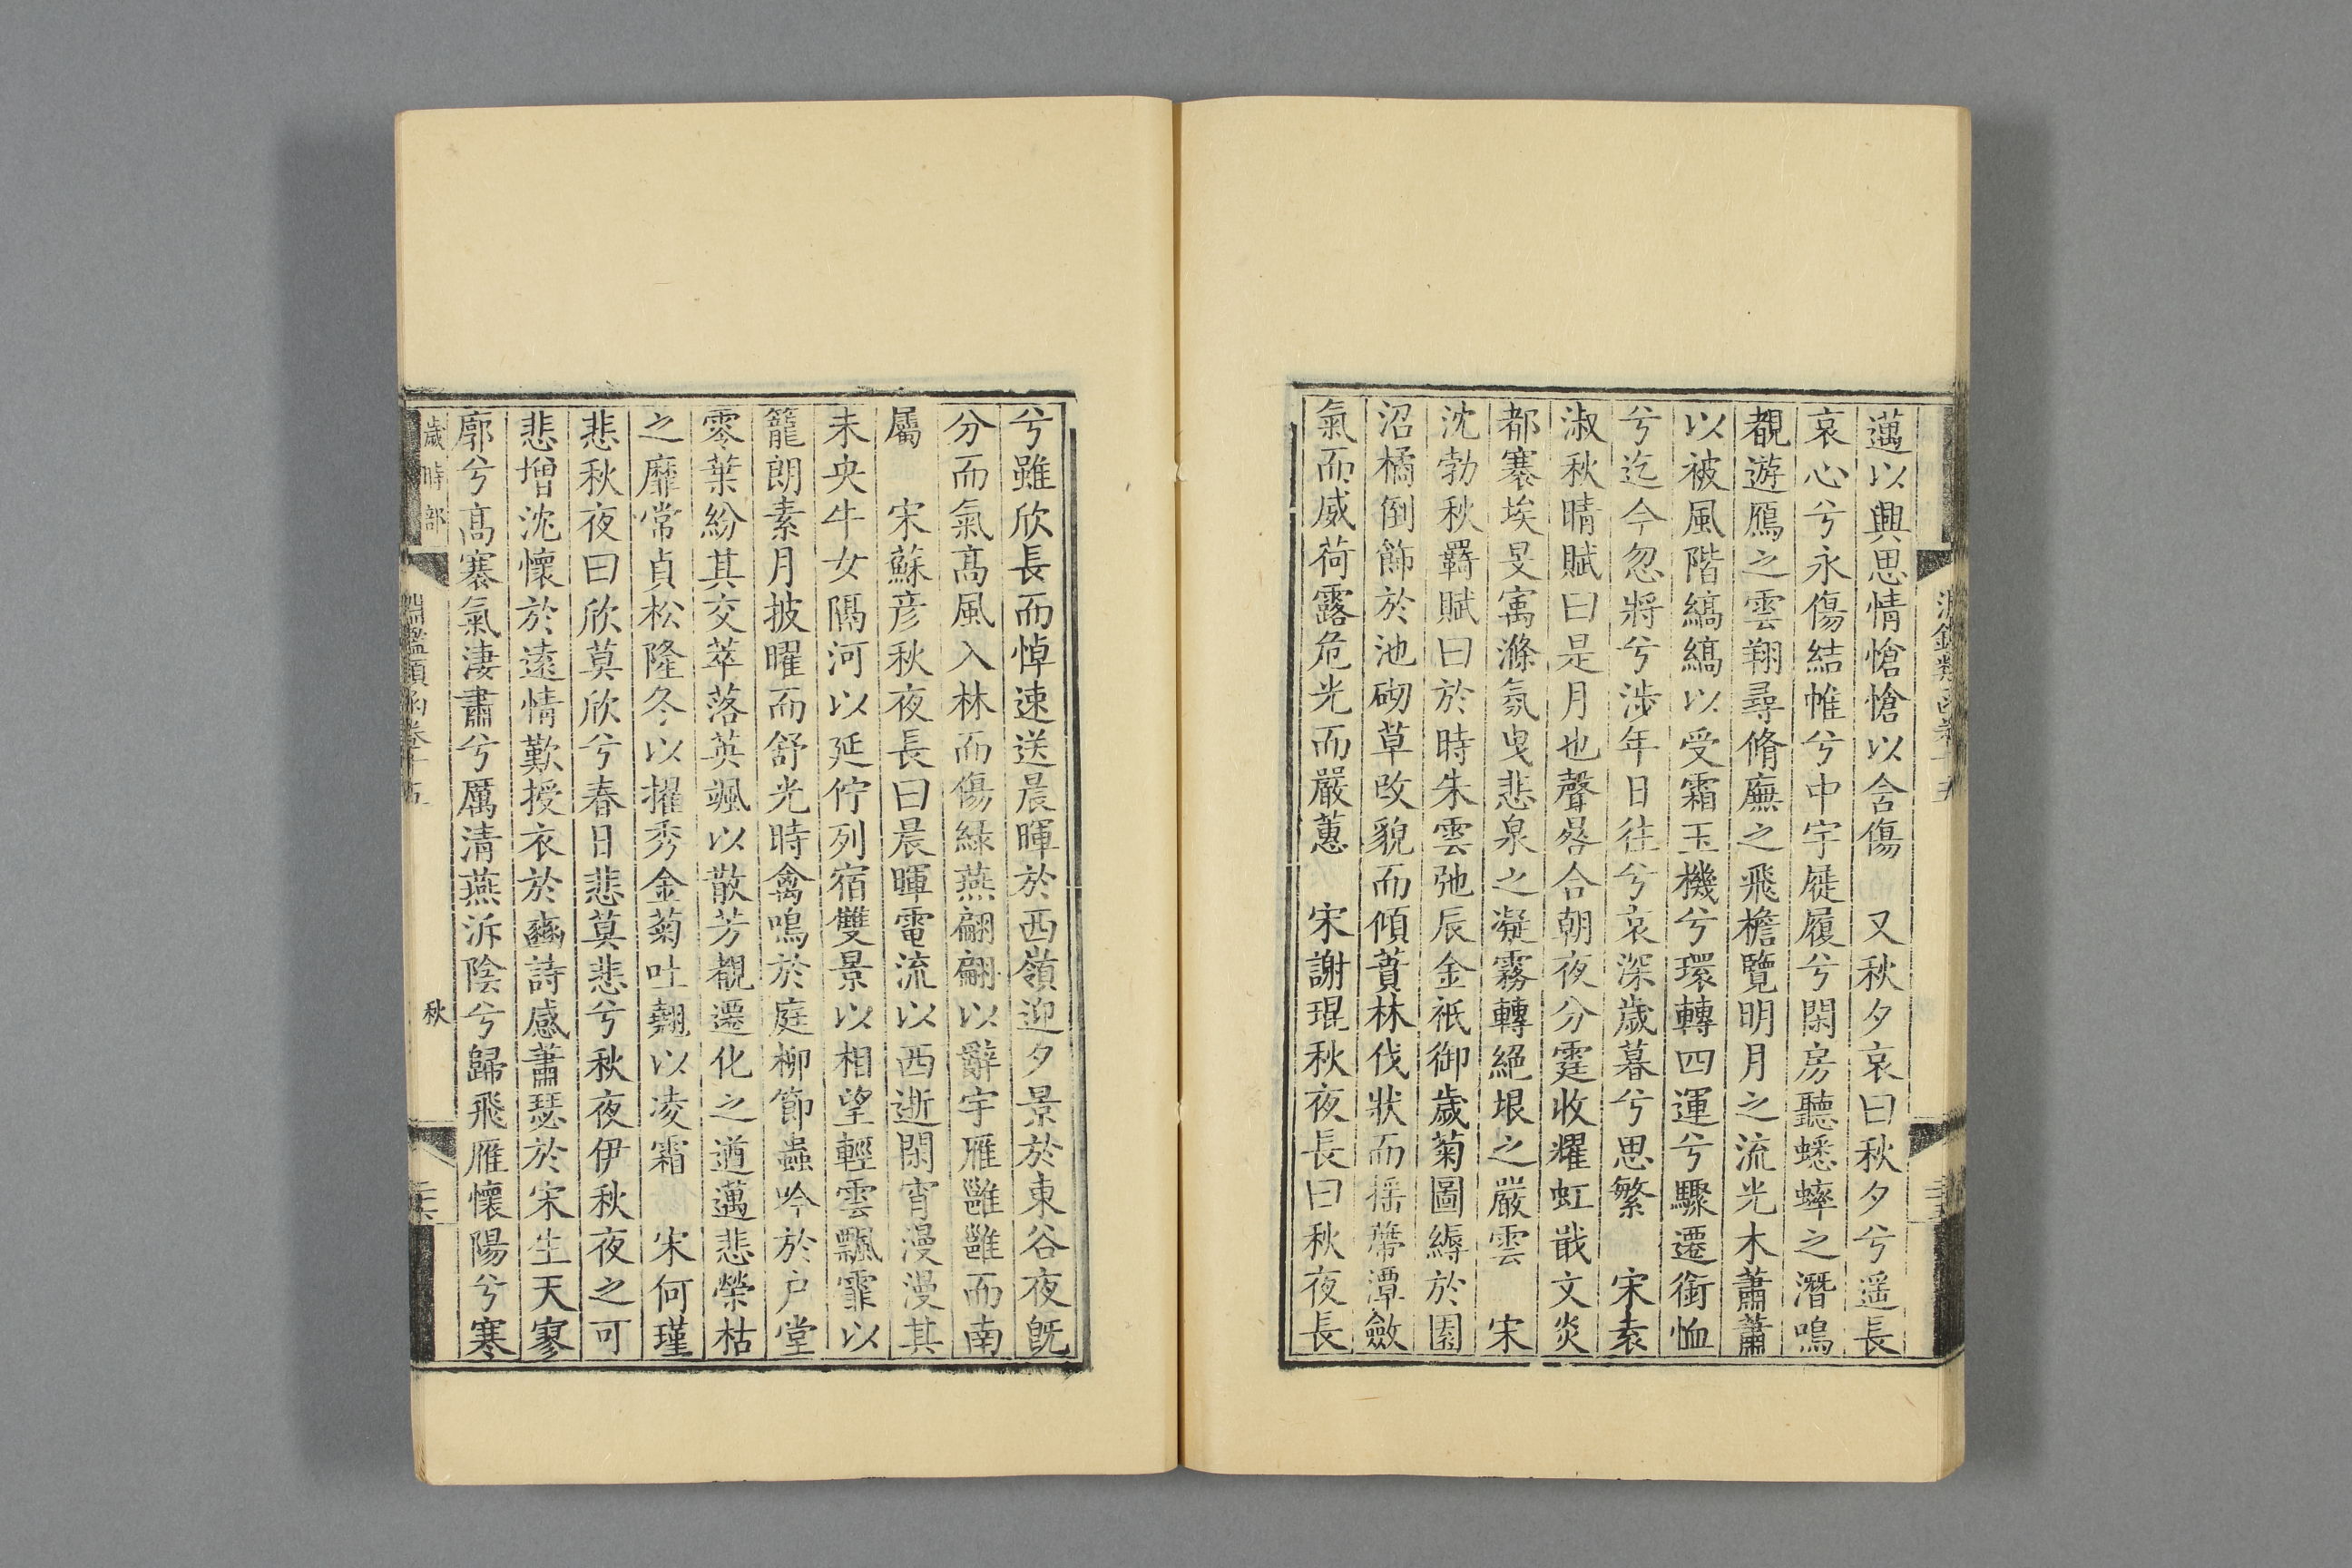 邁以興思情愴愴以含傷　又秋夕哀曰秋夕兮遥長
哀心兮永傷結帷兮中宇屣履兮閑房聽蟋蟀之潛鳴
覩遊鴈之雲翔尋脩廡之飛檐覽明月之流光木蕭蕭
以被風階縞縞以受霜玉機兮環轉四運兮驟遷銜恤
兮迄今忽將兮渉年日往兮哀深歲暮兮思繁　宋袁
淑秋晴賦曰是月也聲晷合朝夜分霆收耀虹戢文炎
都褰埃旻寓滌氛曳悲泉之凝霧轉絕垠之嚴雲　宋
沈勃秋羇賦曰於時朱雲弛辰金祇御歲菊圖縟於園
沼橘倒飾於池砌草改貌而傾蕡林伐狀而揺蔕潭斂
氣而威荷露危光而嚴蕙　宋謝琨秋夜長曰秋夜長
兮雖欣長而悼速送晨暉於西嶺迎夕景於東谷夜既
分而氣髙風入林而傷緑燕翩翩以辭宇雁雝雝而南
屬　宋蘇彦秋夜長曰晨暉電流以西逝閑宵漫漫其
未央牛女隔河以延佇列宿雙景以相望輕雲飄霏以
籠朗素月披曜而舒光時禽鳴於庭柳節蟲吟於户堂
零葉紛其交萃落英颯以散芳覩遷化之遒邁悲榮枯
之靡常貞松隆冬以擢秀金菊吐翹以凌霜　宋何瑾
悲秋夜曰欣莫欣兮春日悲莫悲兮秋夜伊秋夜之可
悲增沈懷於遠情歎授衣於豳詩感蕭瑟於宋生天寥
廓兮髙褰氣淒肅兮厲清燕泝陰兮歸飛雁懷陽兮寒
歲時部
淵鑑類函卷十五
秋